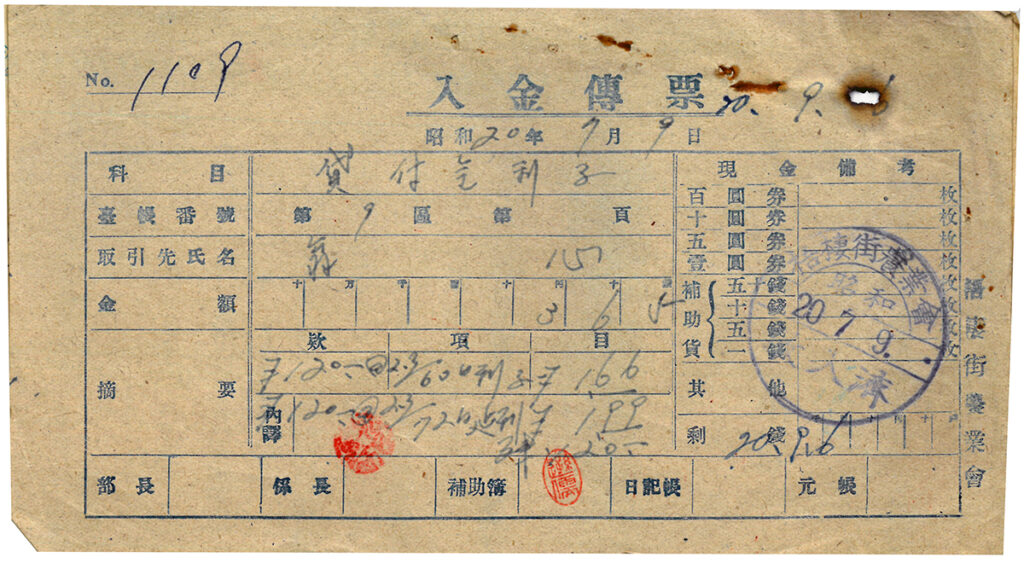 No. 1109
入金傳票
20. 9. 6
昭和20年7月9日
科目 貸付金利子
臺帳番號 第9區第 頁
取引先氏名 151
金額 十万千百十円十錢
3 6 5
摘要
款 項 目
120. 2.3 60日利子 1.66
內譯 120. 2.3 72日 1.99
120.
現金備考
百圓券 枚
十圓券 枚
五圓券 枚
壹圓券 枚
補助貨
五十錢 枚
十錢 枚
五錢 枚
一錢 枚
其他
剩錢
20.9.6
梧棲街農業會
昭和
20.7.9.
入濟
梧棲街農業會
部長 係長 補助簿 日記帳 元帳